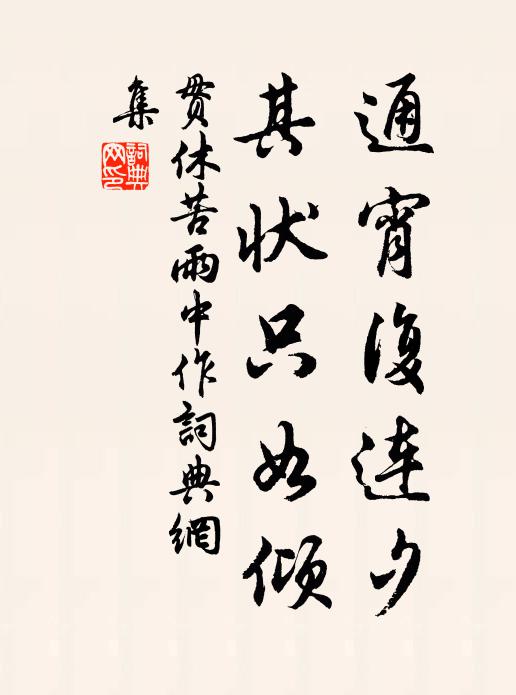 通宵復連夕
其状只如傾
貫休苦雨中作詞典網
集
詞典
网印